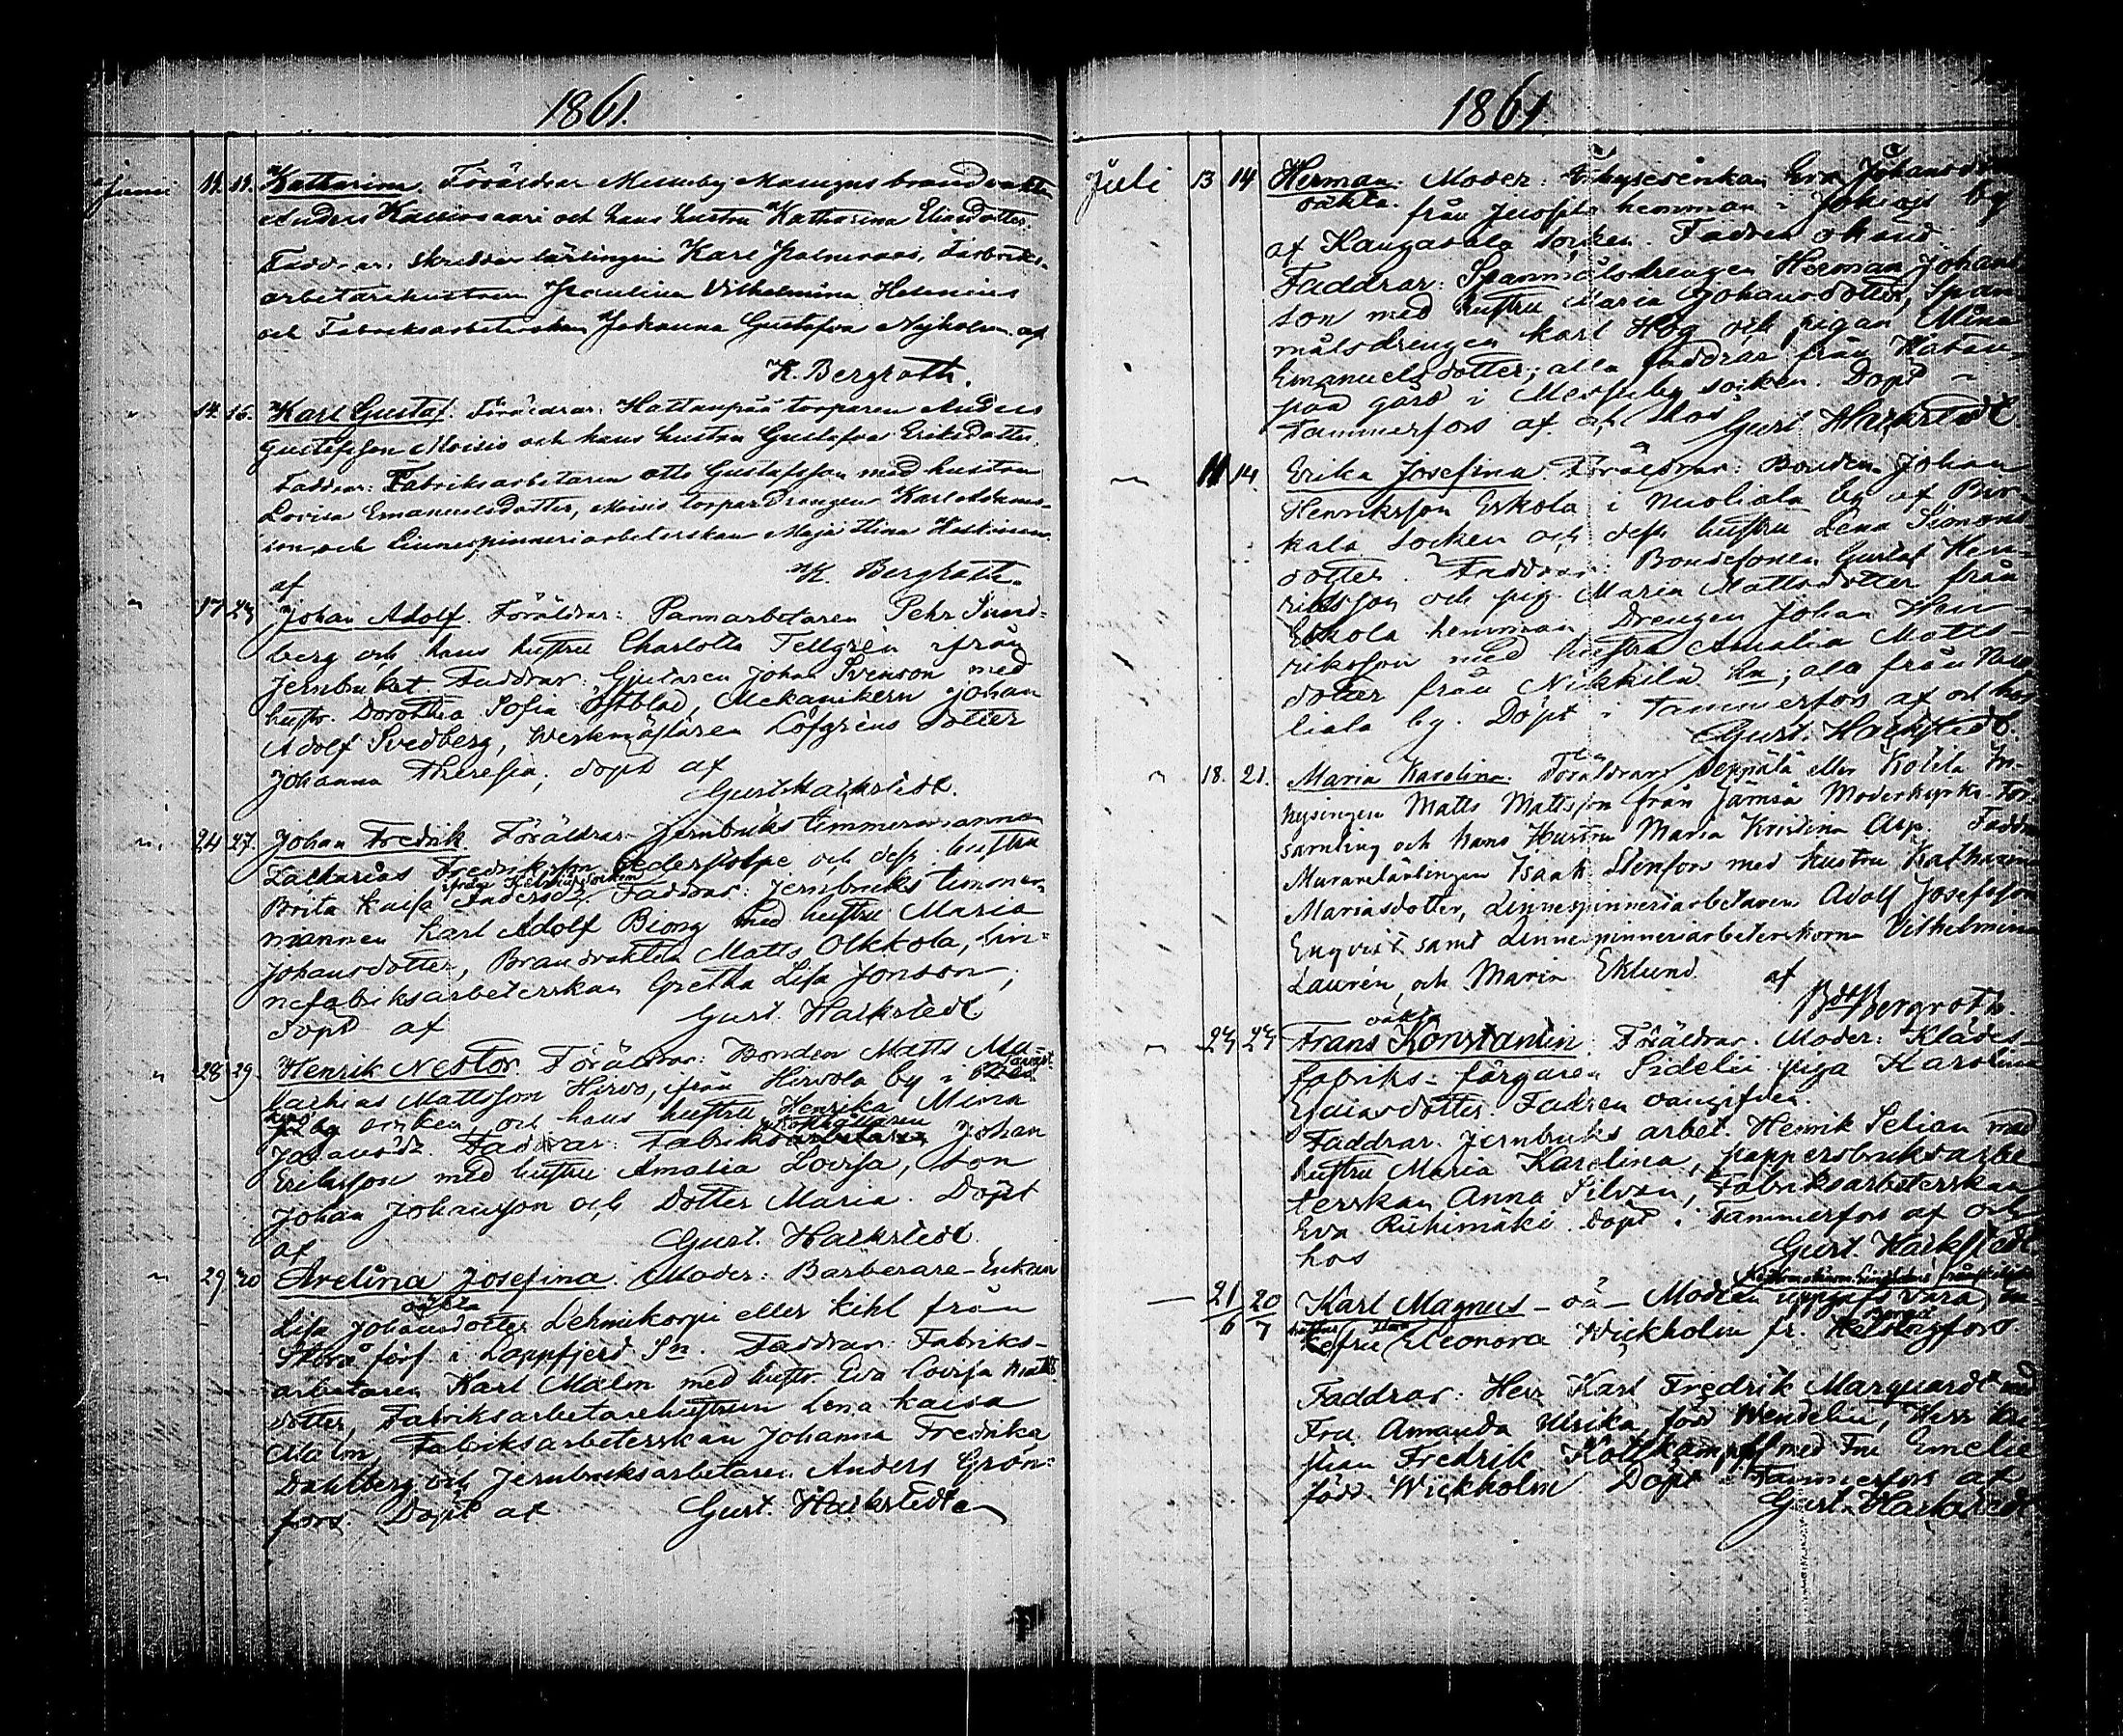 1861.
Junii 11. 14. Katharina. Föräldrar Messuby Masugns brandvakten
Anders Kallinsaari och hans hustru Katharina Eliasdotter.
Faddrar: Skräddar lärlingen Karl, Fabriks-
arbetarehustrun Paulina Vilhelmina Helenius
och Fabriksarbeterskan Johanna Gustafva Nyholm. af
K. Bergroth.
" 14. 16. Karl Gustaf. Föräldrar: Hattanpää torparen Anders
Gustafsson Moisio och hans hustru Gustafva Eriksdotter.
Faddrar: Fabriksarbetaren Otto Gustafsson med hustru
Lovisa Emanuelsdotter, Moisio torpar drängen Karl Adams-
son och Linnespinneriarbeterskan Maja Stina
af K. Bergroth.
" 17 23 Johan Adolf. Föräldrar: Pannarbetaren Pehr Sund-
berg och hans hustru Charlotta Tellgrén ifrån
Jernbruket. Faddrar: Gjutaren Johan Svenson med
hustr. Dorothea Sofia Östblad, Mekanikern Johan
Adolf Svedberg, Werkmästaren Löfgrens dotter
Johanna Theresia, döpt af
Gust. Hackstedt.
" 24 27. Johan Fredrik. Föräldrar Jernbruks timmermannen
Zacharias Fredriksson Cederstolpe och dess hustru
ifrån socken
Brita Kaisa Andersdr. Faddrar: Jernbruks timmer-
mannen Karl Adolf Biong med hustru Maria
Johansdotter, Brandvakten Matts Olkkola, Lin-
nefabriksarbeterskan Gretha Lisa Jonson,
döpt af Gust. Hackstedt
" 28 29. Henrik Nestor. Föräldrar: Bonden Matts Ma-
thias Mattsson Hirvo, ifrån Hirvola by i
socken, och hans hustru Henrika Mina
Johansdr. Faddrar: Johan
Eriksson med hustru Amalia Lovisa, son
Johan Johansson och dotter Maria. Döpt
af Gust. Hackstedt.
" 29 30 Avelina Josefina. Moder: Barberare-Enkan
oäkta
Lisa Johansdotter Lehmikorpi eller Kihl från
Storå förs. i Lappfjerd Sn. Faddrar: Fabriks-
arbetaren Karl Malm med hustr. Eva Lovisa Matts-
dotter, Fabriksarbetarehustrun Lena Kaisa
Malm, Fabriksarbeterskan Johanna Fredrika
Dahlberg och Jernbruksarbetaren Anders Grön-
fors. Döpt af Gust. Hackstedt
1861.
Juli 13 14 Herman. Moder: Inhysesenkan Eva Johansdotter
oäkta. från Juoppila hemman i by
af Kangasala socken. Fadren okänd.
Faddrar: Spanmålsdrengen Herman Johans-
son med hustru Maria Johansdotter, Span-
målsdrengen Karl Hög och pigan Mina
Emanuelsdotter; alla faddrar från Hatan-
pää gård i Messuby socken. Döpt i
Tammerfors af och hos Gust. Hackstedt.
" 11 14. Erika Josefina. Föräldrar: Bonden Johan
Henriksson Eskola i Nuoliala by af Bir-
kala socken och dess hustru Lena Simons-
dotter. Faddrar: Bondesonen Gustaf Hen-
riksson och pig. Maria Mattsdotter från
Eskola hemman, Drengen Johan Hen-
riksson med hustru Amalia Matts-
dotter från Nikkilä hn; ala från Nuo-
liala by. Döpt i Tammerfors af och hos
Gust. Hackstedt.
" 18. 21. Maria Karolina. Föräldrar: Seppälä eller Kotila In-
hysingen Matts Mattsson från Jämsä Moderkyrko-För-
samling och hans Hustru Maria Kristina Asp. Faddrar
Murarelärlingen Isaak Stenfors med hustru Katharina
Mariasdotter, Linnespinneriarbetaren Adolf Josefsson
Enqvist samt Linnespinneriarbeterskorna Vilhelmina
Laurén, och Maria Eklund af
Bergroth.
oäkta
" 23 23 Frans Konstantin. Föräldrar. Moder: Klädes-
fabriks-färgaren Sidelii piga Karolina
Esaiasdotter. Fadren oangifven.
Faddrar. Jernbruks arbet. Henrik Selian med
hustru Maria Karolina, pappersbruksarbe-
terskan Anna Silvan, Fabriksarbeterskan
Eva Riihimäki. Döpt i Tammerfors af och
hos Gust. Hackstedt
— 21/6 20/7 Karl Magnus - oä - Modren uppgifs vara
fru Eleonora Wickholm fr. Helsingfors
Borgå
Faddrar: Herr Karl Fredrik Marquardt med
Fru Amanda Ulrika född Wendelin, Herr Kri-
stian Fredrik Kottkampff med Fru Emelie
född Wickholm Döpt i Tammerfors af
Gust. Hackstedt